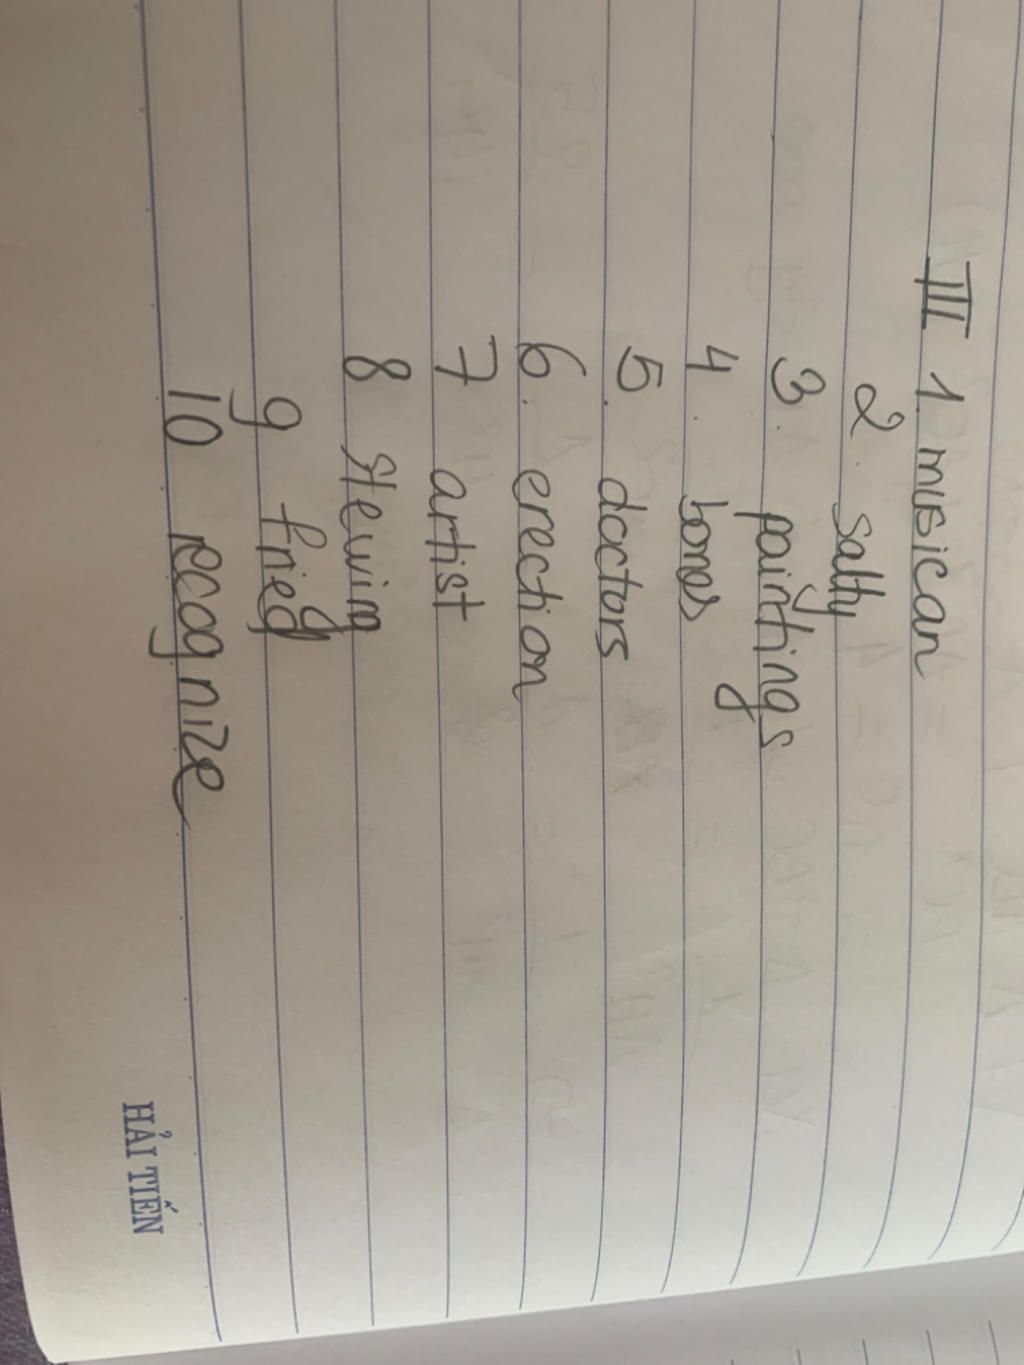 III 1. musican
2. salty
3. paintings
4. bones
5. doctors
6. erection
7 artist
8 stewing
9 fried
10 recognize
HẢI TIẾN